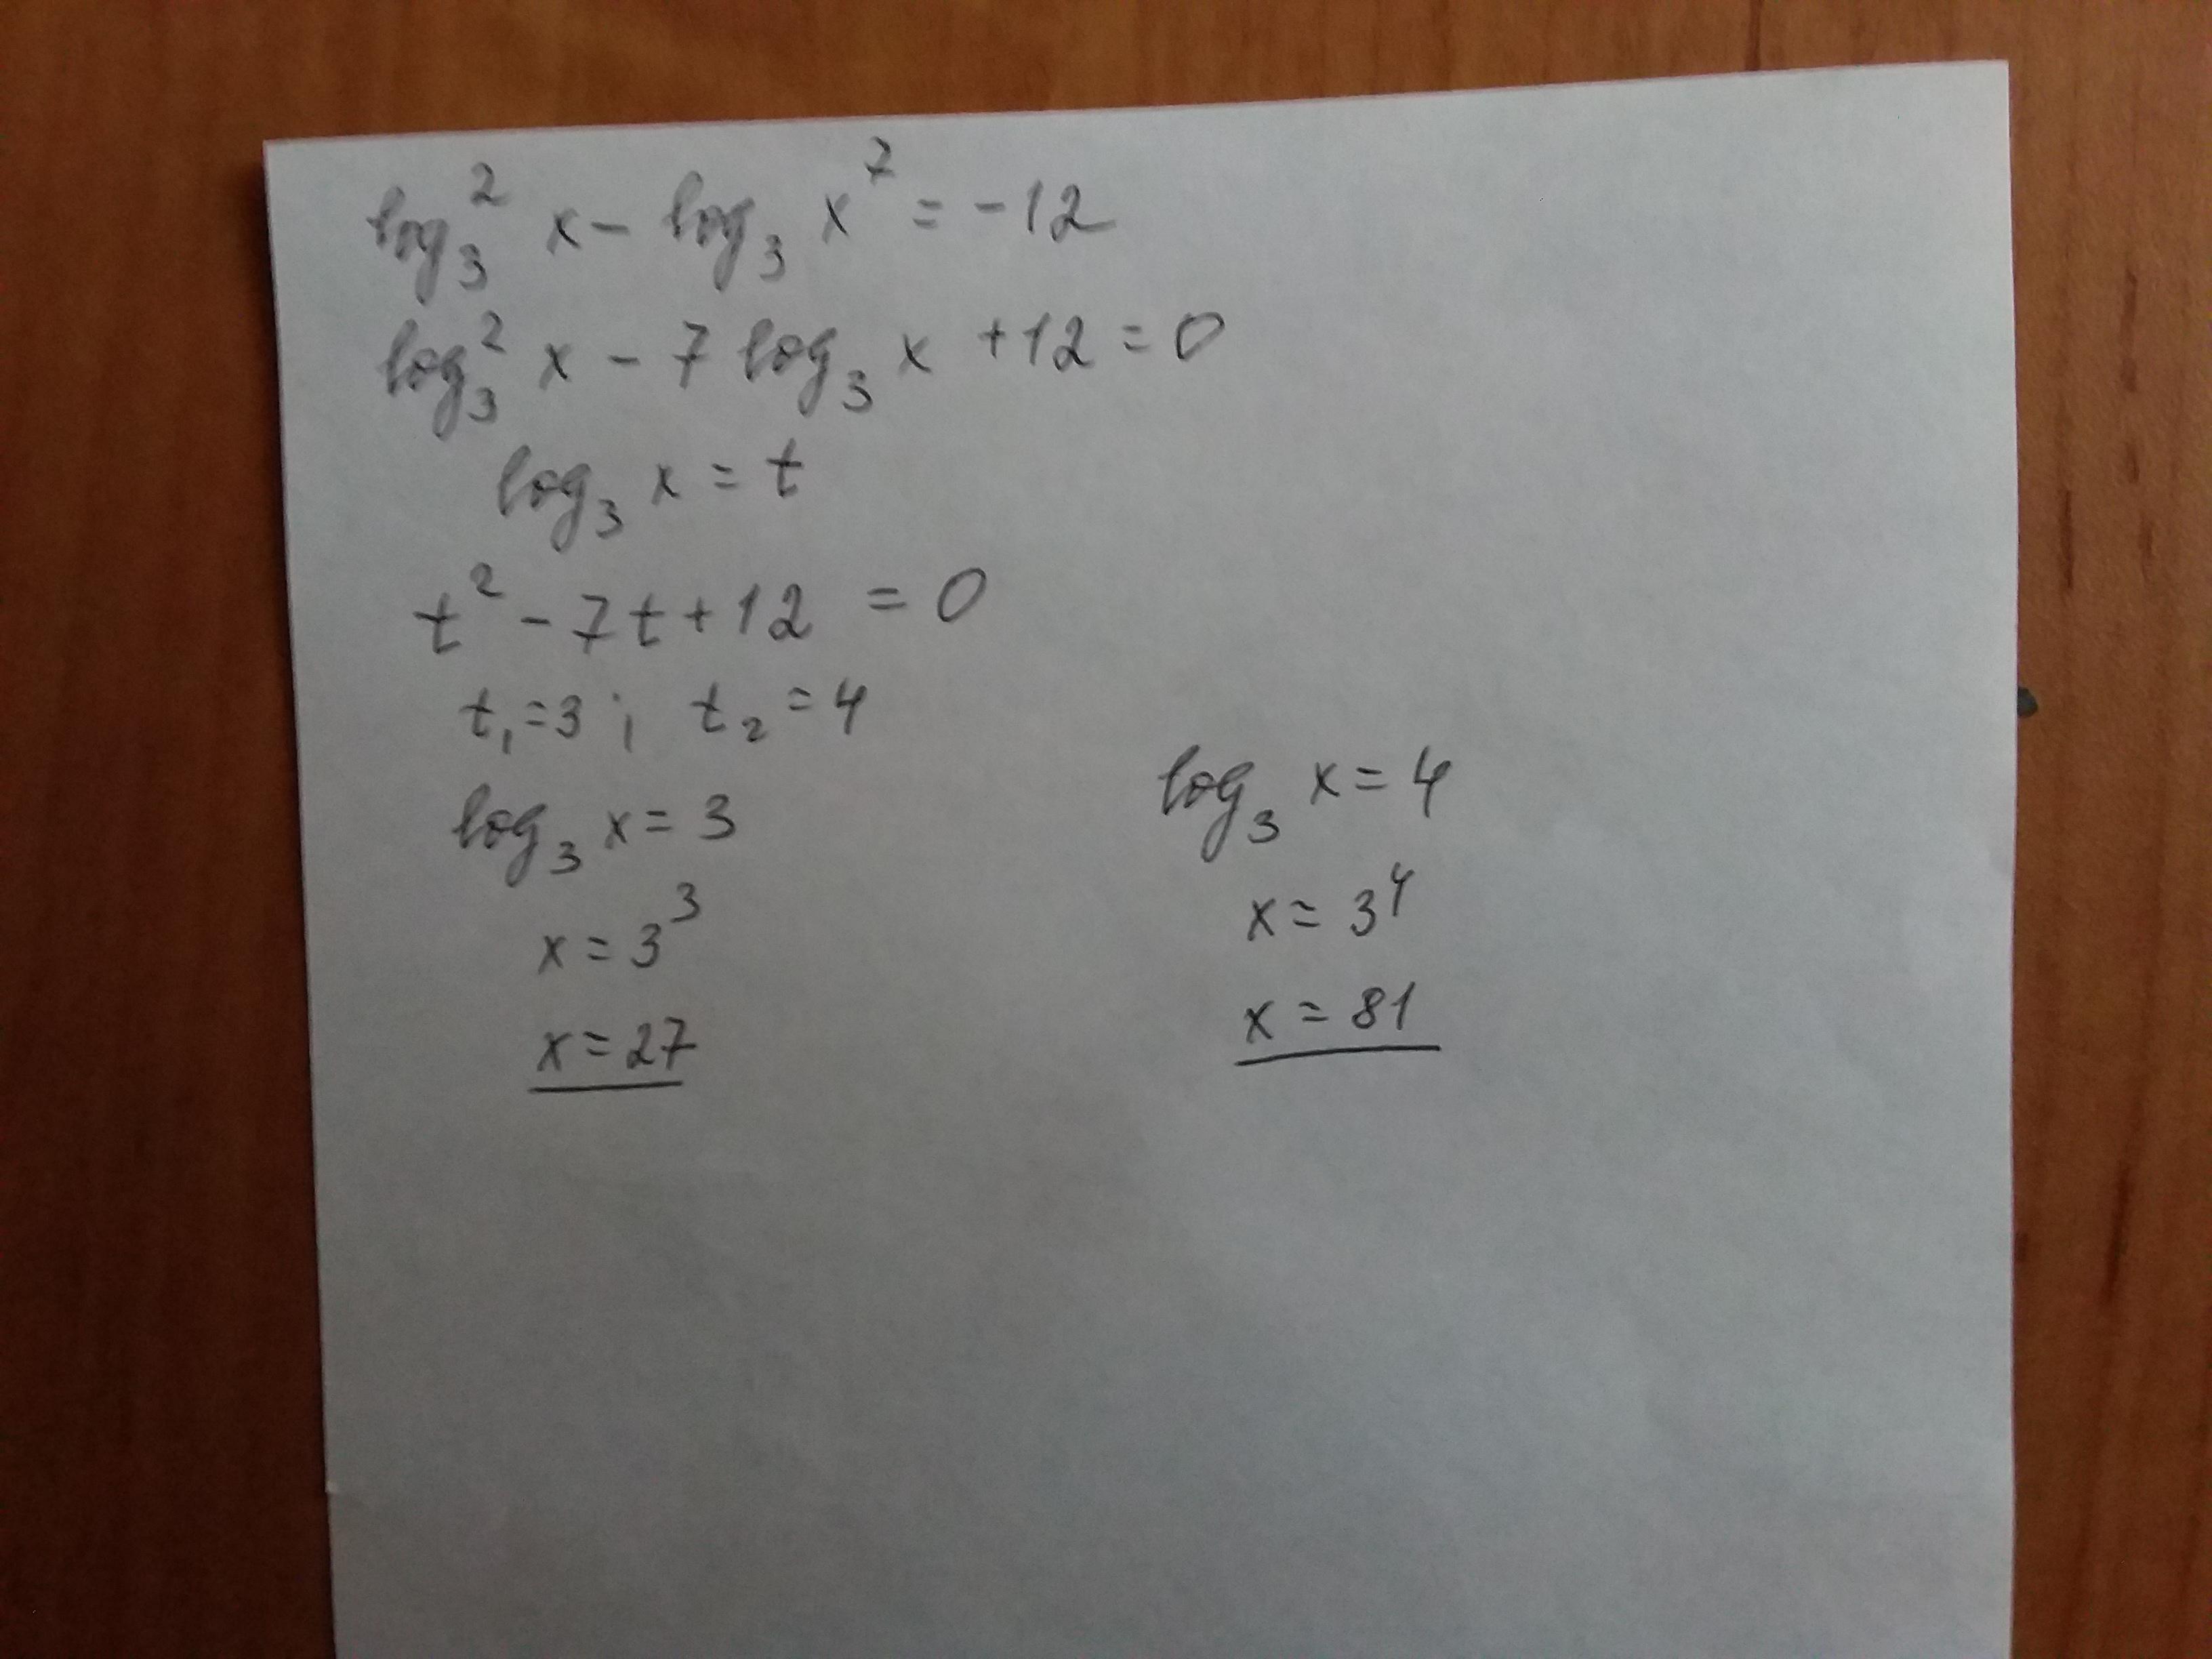 log₃² x - log₃ x⁷ = -12
log₃² x - 7 log₃ x + 12 = 0
log₃ x = t
t² - 7t + 12 = 0
t₁ = 3 ; t₂ = 4
log₃ x = 3
x = 3³
x = 27
log₃ x = 4
x = 3⁴
x = 81